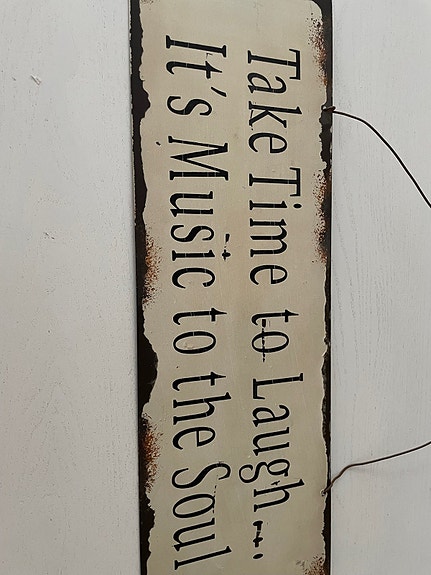 Take Time to Laugh...
It's Music to the Soul